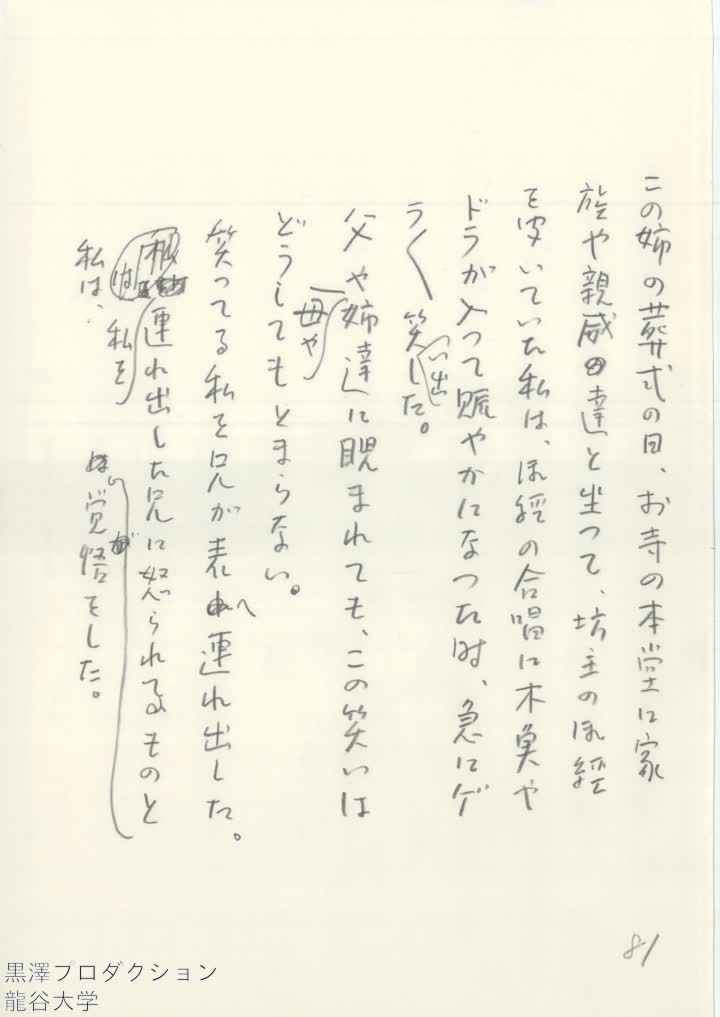 この姉の葬式の日、お寺の本堂に家
族や親戚の達と坐つて、坊主の経
を聞いていた私は、経の合唱に木魚や
ドラが入つて賑やかになつた時、急にゲ
ラ〱笑い出した。
父や母や姉達に睨まれても、この笑いは
どうしてもとまらない。
笑つてる私を兄が表へ連れ出した。
私は、私を連れ出した兄に怒られるものと
覚悟をした。
81
黒澤プロダクション
龍谷大学